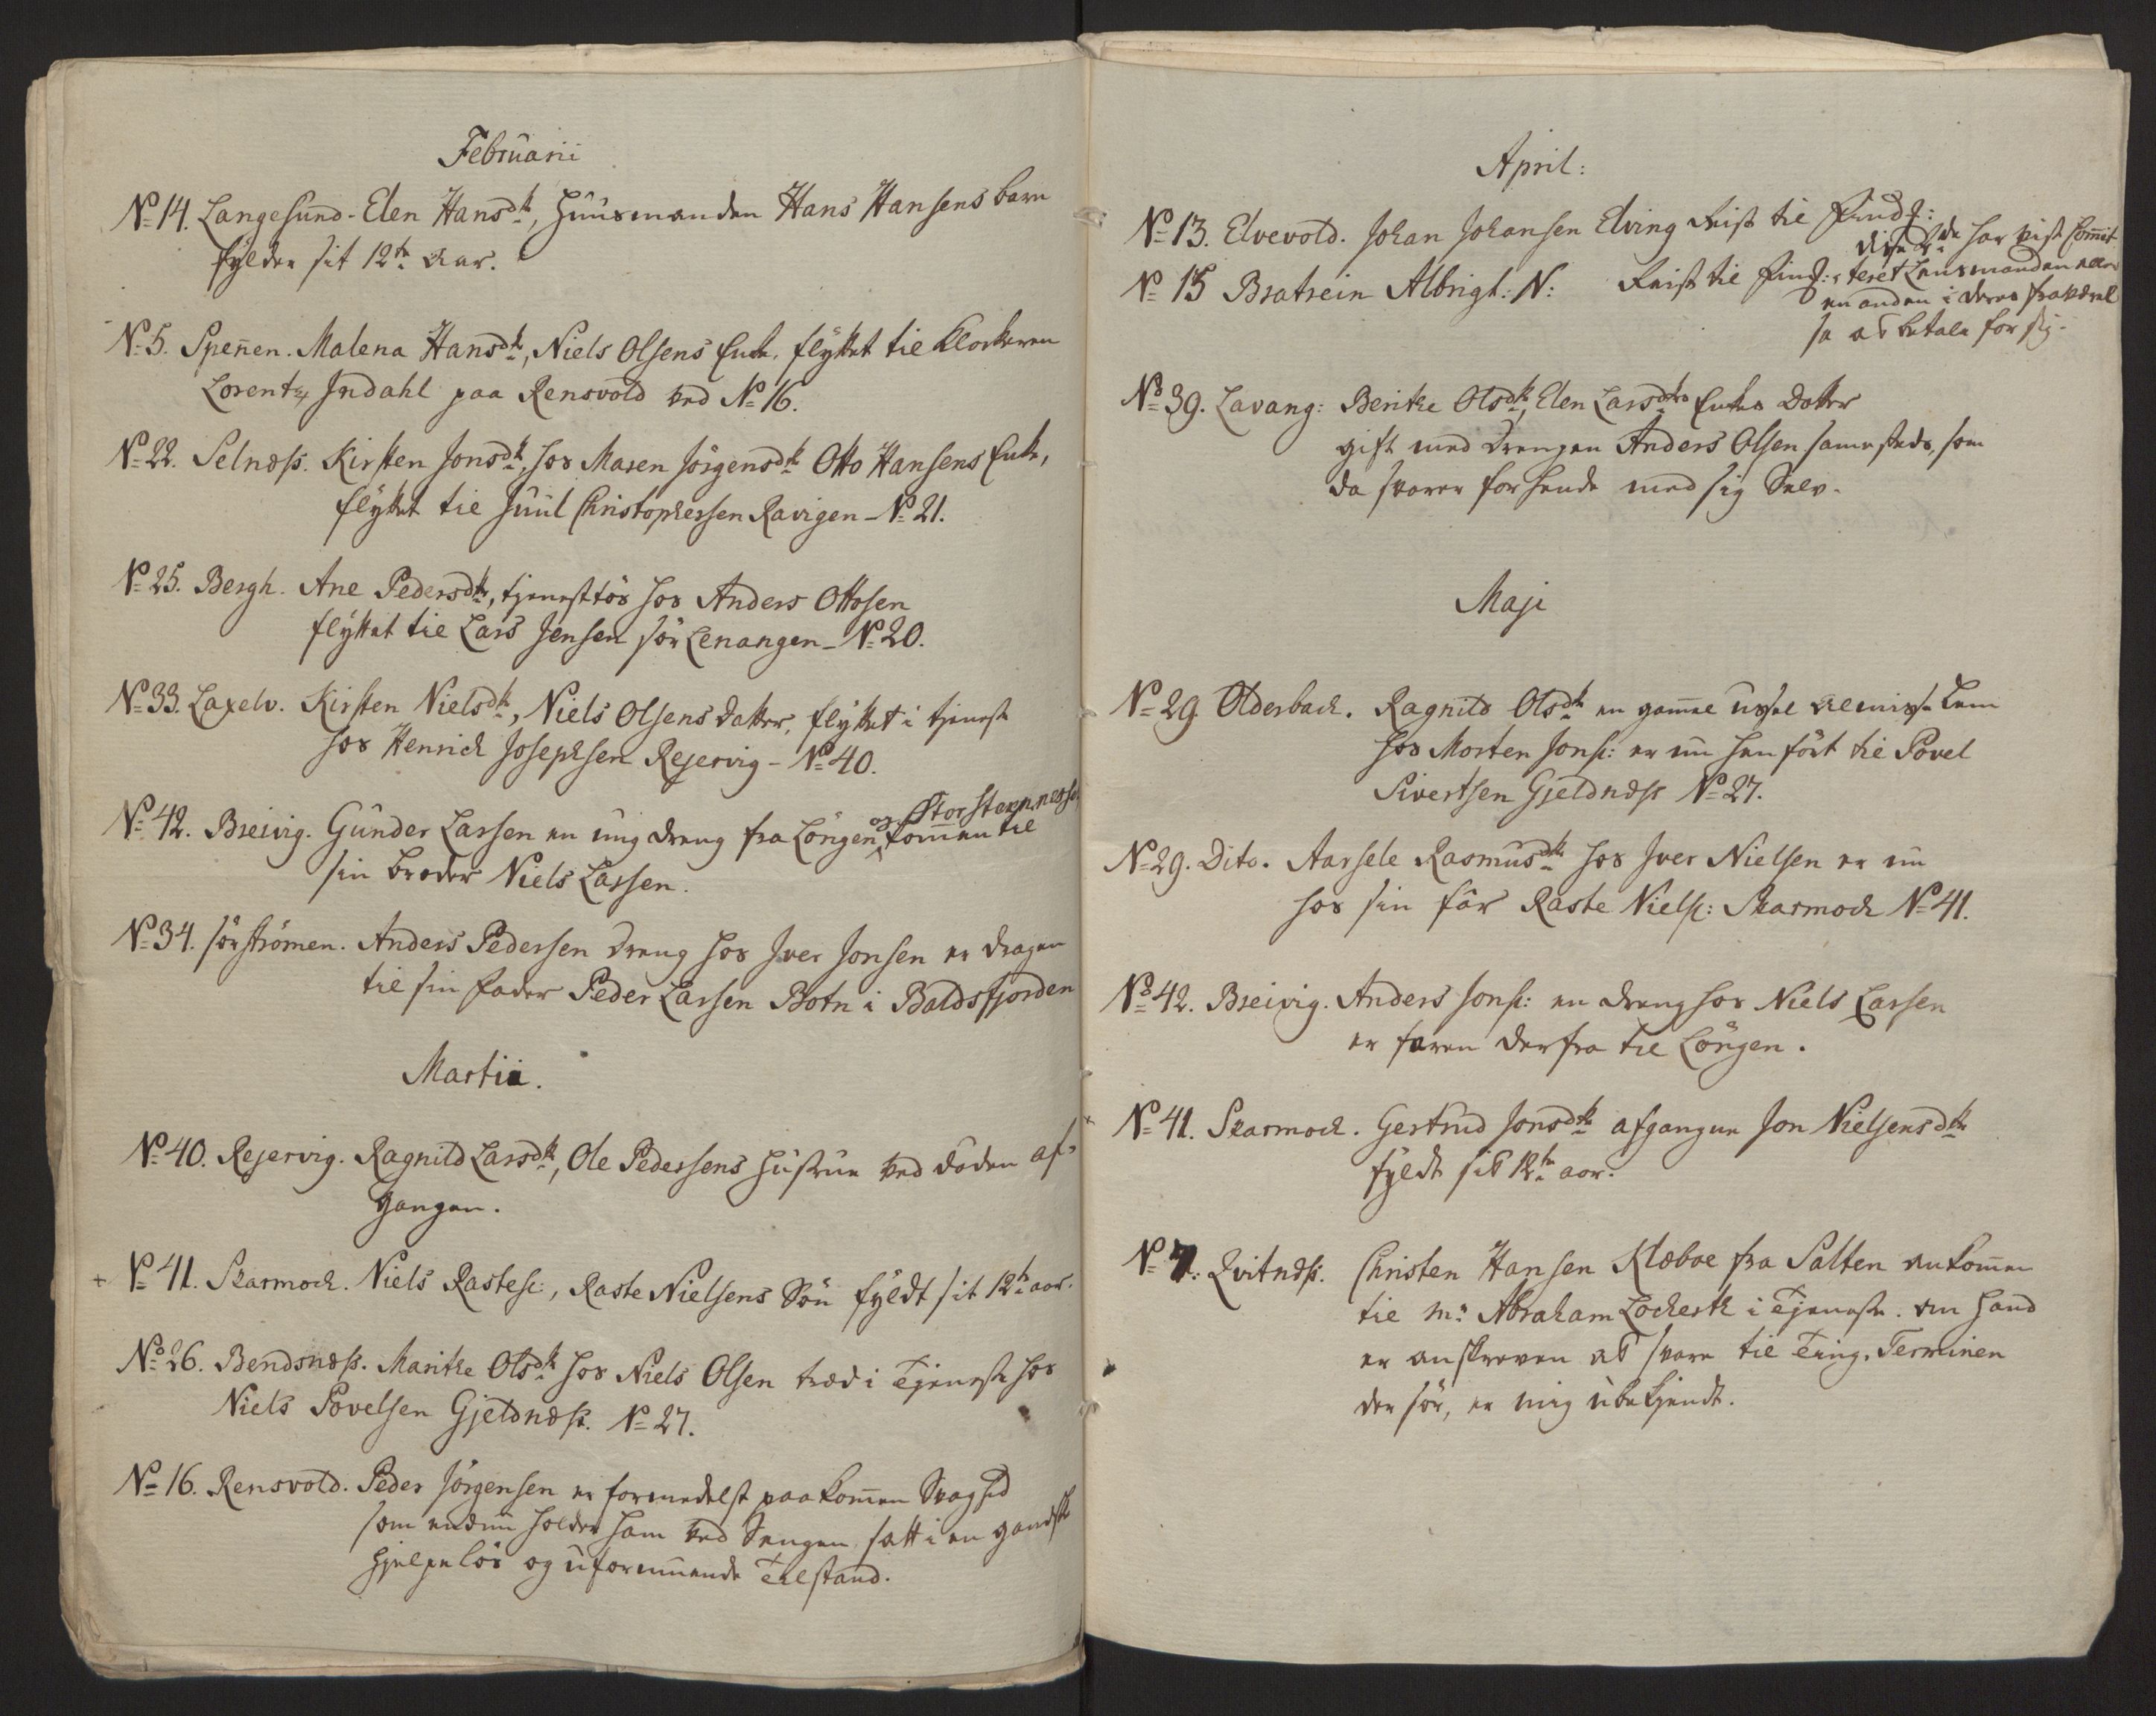 Februarii
No 14. Langesund. Elen Hansdtr, Huusmanden Hans Hansens barn
fylder sit 12te Aar.
No 5. Spennen. Malena Hansdtr, Niels Olsens Enke, flyttet til Klockeren
Lorentz Indahl paa Rensvold ved No 16.
No 22. Selnæss. Kirsten Jonsdtr, hos Maren Jörgensdtr Otto Hansens Enke,
flyttet til Juul Christophersen Ravigen - No 21.
No 25. Bergh. Ane Pedersdtr, tjenesttös hos Anders Ottosen
flyttet til Lars Jensen sör Lenangen - No 20.
No 33. Laxelv. Kirsten Nielsdtr, Niels Olsens datter, flyttet i tjeneste
hos Henrich Josephsen Rejervig - No 40.
og Storstennesset
No 42. Breivig. Gunder Larsen en ung dreng fra Löngen, kommen til
sin broder Niels Larsen.
No 34. sörströmen. Anders Pedersen dreng hos Iver Jonsen er dragen
til sin fader Peder Larsen Botn i Baldsfjorden
Martii.
No 40. Rejervig. Ragnild Larsdtr, Ole Pedersens hustrue ved döden af-
gangen.
+ No 41. Skarmoch. Niels Rastes:, Raste Nielsens Sön fyldt sit 12te aar.
No 26. Bendsnæss. Marithe Olsdtr hos Niels Olsen træd i Tjeneste hos
Niels Povelsen Gjeldnæss. No 27.
No 16. Rensvold. Peder Jörgensen er formedelst paakommen Svaghed
som endnu holder ham ved Sengen, satt i en gandske
hjelpelös og uformuende Tilstand.
April:
No 13. Elvevold. Johan Johansen Elving Reist til Find:
disse 2de har vist commit-
No 15 Bratrein Albrigt: N: Reist til Find: teret Lensmanden eller
en anden i deres fraværel-
se at betale for sig.
No 39. Lavang: Berithe Olsdtr, Elen Larsdtrs Enkes Datter
gift med drengen Anders Olsen samesteds, som
da svarer for hende med sig Selv.
Maji
No 29 Olderbach. Ragnild Olsdtr en gammel ussel Almisse Lem
hos Morten Jons: er nu henfört til Povel
Sivertsen Gjeldnæss No 27.
No 29. Dito. Aarsele Rasmusdtr hos Iver Nielsen er nu
hos sin far Raste Niels: Skarmoch No 41.
No 42. Breivig. Anders Jons: en dreng hos Niels Larsen
er faren derfra til Löngen.
+ No 41. Skarmoch. Gertrud Jonsdtr afgangne Jon Nielsens dtr
fyldt sit 12te aar.
No 7. Qvitnæss. Christen Hansen Klæboe fra Salten ankommen
til Mr Abraham Lockertt i Tjeneste. om hand
er anskreven at svare til Ting-Terminen
der sör, er mig ubekjendt.